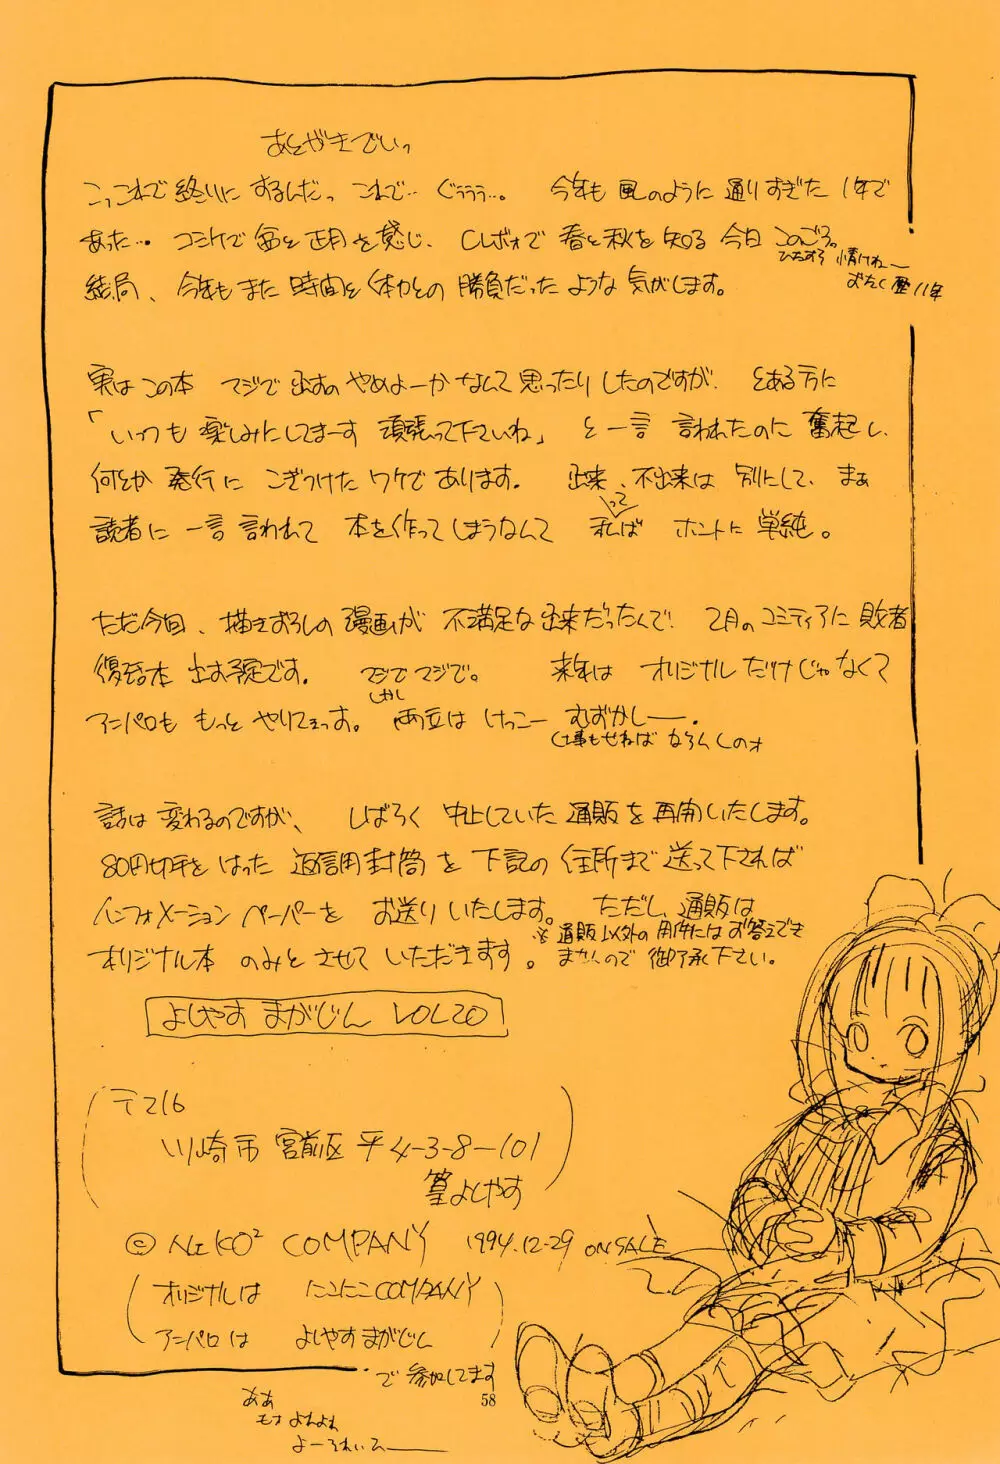 あとがきでいっ
こっこれで終りにするんだっ これで… ぐぅぅぅ…。 今年も風のように通りすぎた1年で
あった… コミケで盆と正月を感じ、CLボォで春と秋を知る今日このごろ。
ひたすら情けねー
おたく歴11年
結局、今年もまた時間と体力との勝負だったような気がします。
実はこの本 マジで出すのやめよーかなんて思ったりしたのですが、とある方に
「いつも楽しみにしてまーす 頑張って下さいね」と一言 言われたのに奮起し、
何とか発行にこぎつけたワケであります。 出来、不出来は別にして、まぁ
読者に一言言われて本を作ってしまうなんて 私って ホントに単純。
ただ今回、描きおろしの漫画が不満足な出来だったんで、2月のコミティアに敗者
復活本出す予定です。 マジでマジで。 来年はオリジナルだけじゃなくて
アニパロももっとやりてえっす。 しかし両立はけっこーむずかしー。
仕事もせねばならんしのォ
話は変わるのですが、しばらく中止していた通販を再開いたします。
80円切手をはった返信用封筒を下記の住所まで送って下されば
インフォメーションペーパーをお送りいたします。 ただし、通販は
オリジナル本のみとさせていただきます。
※通販以外の用件にはお答えでき
ませんので御了承下さい。
よしやすまがじん VOL20
〒216
川崎市宮前区平4-3-8-101
篁よしやす
© NEKO² COMPANY 1994.12.29 ON SALE
オリジナルは にこにこCOMPANY
アニパロは よしやすまがじん
で参加してます
58
ああ
もォよれよれ
よーろれいひー